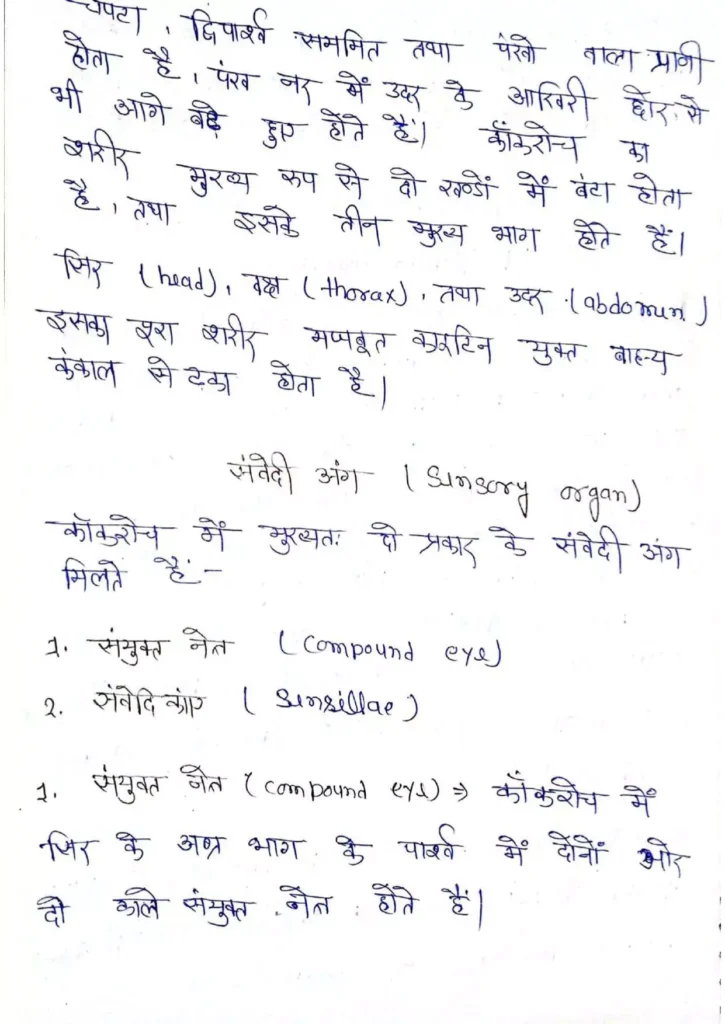 चपटा, द्विपार्श्व सममित तथा पंखो वाला प्राणी
होता है, पंख नर में उदर के आखिरी छोर से
भी आगे बढे हुए होते हैं। कॉकरोच का
शरीर मुख्य रुप से दो खण्डों में बंटा होता
है, तथा इसके तीन मुख्य भाग होते हैं।
सिर (head), वक्ष (thorax), तथा उदर (abdomun)
इसका पूरा शरीर मजबूत काइटिन युक्त बाह्य
कंकाल से ढका होता है।
संवेदी अंग (Sunsory organ)
कॉकरोच में मुख्यतः दो प्रकार के संवेदी अंग
मिलते हैं:-
1. संयुक्त नेत्र (compound eye)
2. संवेदिकांए (Sunsillae)
1. संयुक्त नेत्र (compound eye) ⇒ कॉकरोच में
सिर के अग्र भाग के पार्श्व में दोनों ओर
दो काले संयुक्त नेत्र होते हैं।